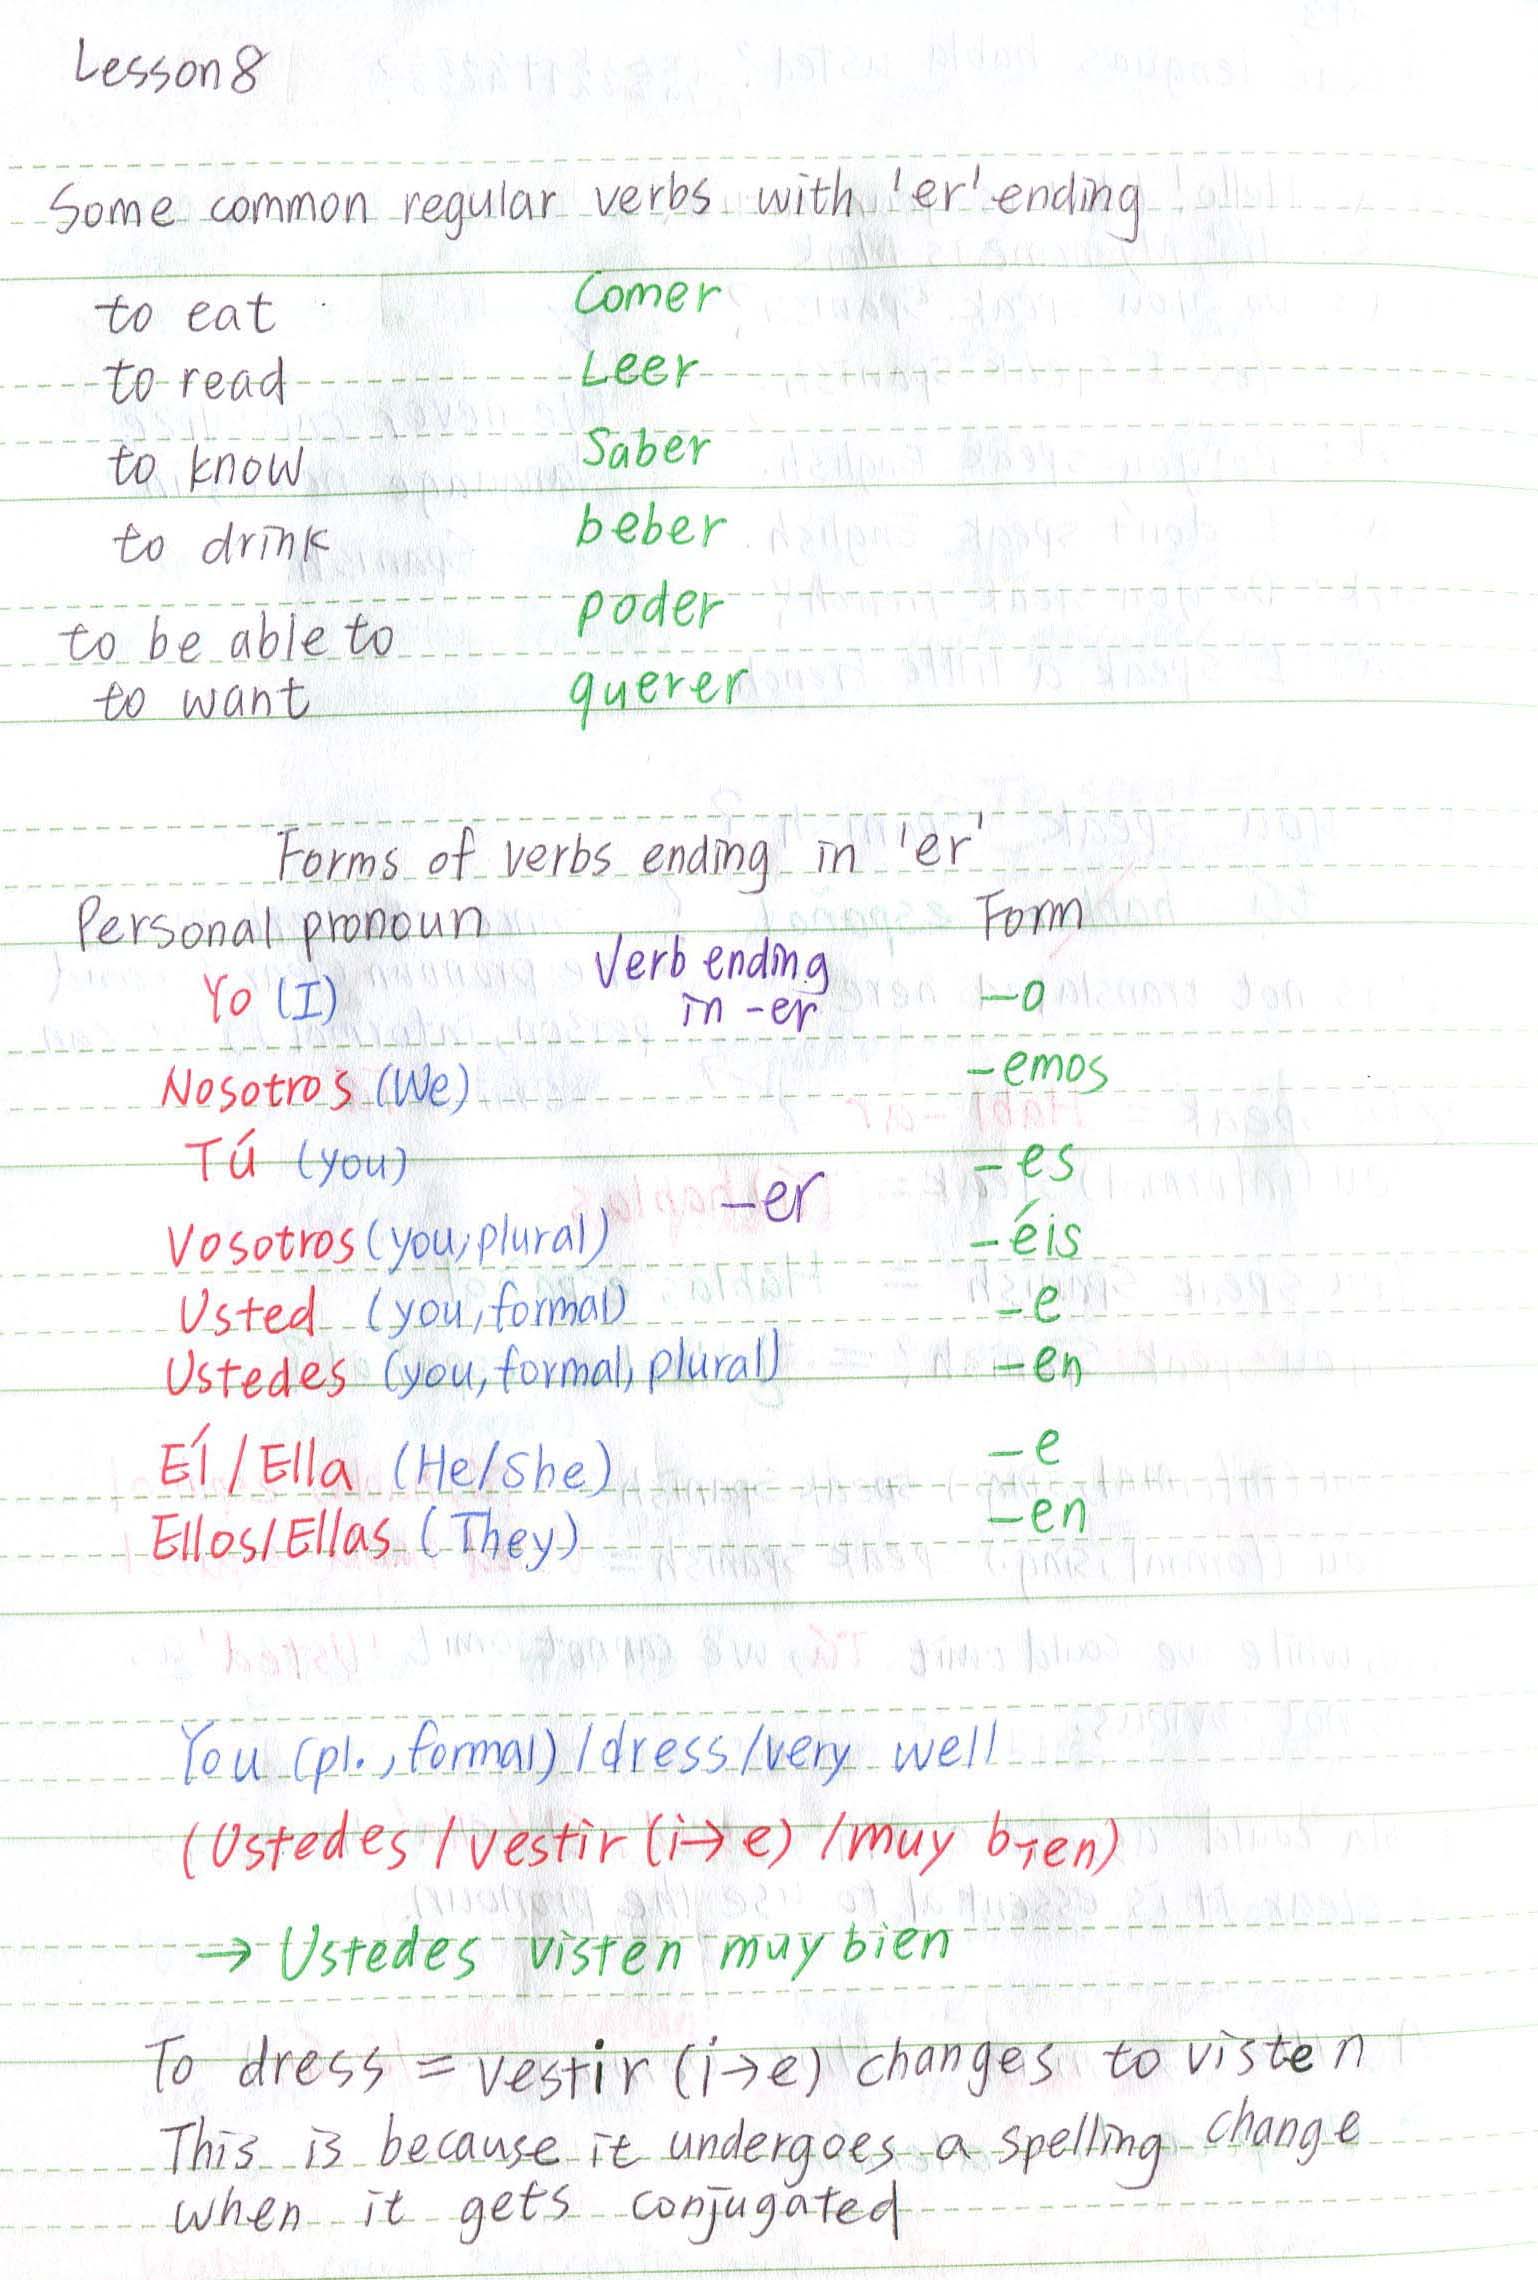 Lesson 8
Some common regular verbs with 'er' ending
to eat Comer
to read Leer
to know Saber
to drink beber
to be able to poder
to want querer
Forms of verbs ending in 'er'
Personal pronoun Verb ending in -er Form
Yo (I) -o
Nosotros (We) -emos
Tú (you) -es
-er
Vosotros (you, plural) -éis
Usted (you, formal) -e
Ustedes (you, formal, plural) -en
Él / Ella (He/She) -e
Ellos/Ellas (They) -en
You (pl., formal) / dress / very well
(Ustedes / vestir (i→e) / muy bien)
→ Ustedes visten muy bien
To dress = vestir (i→e) changes to visten
This is because it undergoes a spelling change
when it gets conjugated